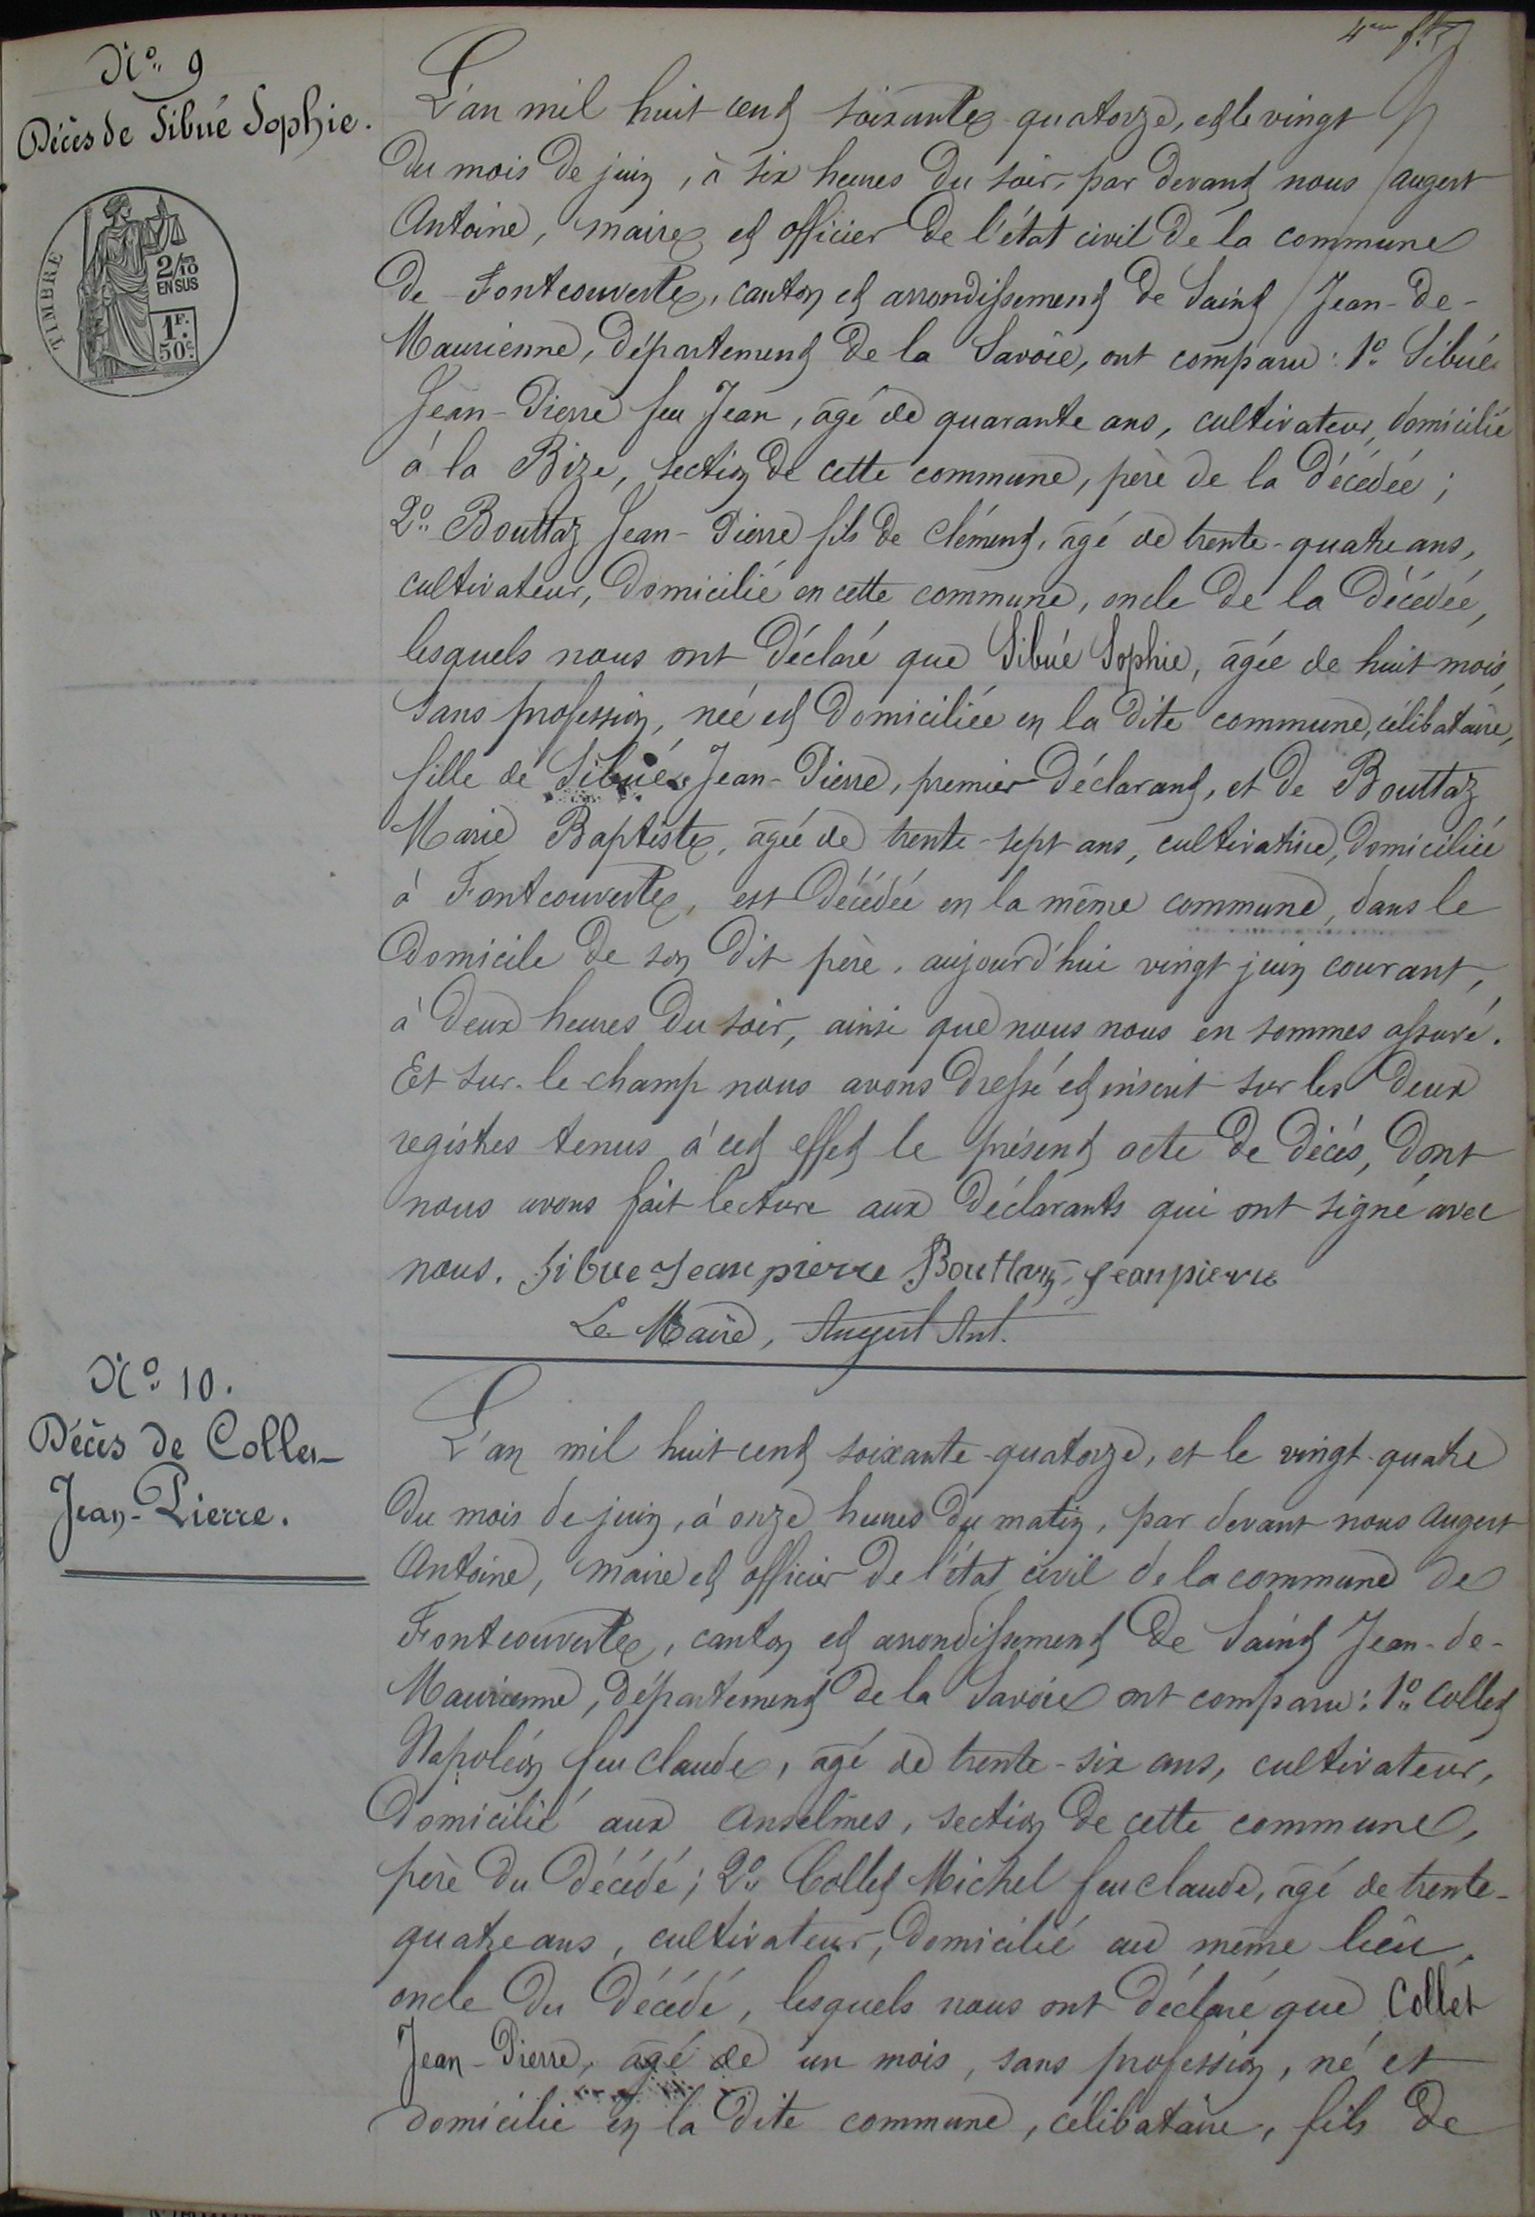 N° 9
Décès de Sibué Sophie.
TIMBRE
2/10
EN SUS
1F.
50c
L'an mil huit cent soixante quatorze, et le vingt
du mois de juin, à six heures du soir, par devant nous Augert
Antoine, maire et officier de l'état civil de la commune
de Fontcouverte, canton et arrondissement de Saint Jean-de-
Maurienne, département de la Savoie, ont comparu : 1° Sibué
Jean-Pierre feu Jean, âgé de quarante ans, cultivateur, domicilié
à la Bize, section de cette commune, père de la décédée ;
2° Bouttaz Jean-Pierre fils de Clément, âgé de trente-quatre ans,
cultivateur, domicilié en cette commune, oncle de la décédée,
lesquels nous ont déclaré que Sibué Sophie, âgée de huit mois,
sans profession, née et domiciliée en la dite commune, célibataire,
fille de Sibué Jean-Pierre, premier déclarant, et de Bouttaz
Marie Baptiste, âgée de trente-sept ans, cultivatrice, domiciliée
à Fontcouverte, est décédée en la même commune, dans le
domicile de son dit père, aujourd'hui vingt juin courant,
à deux heures du soir, ainsi que nous nous en sommes assuré.
Et sur-le-champ nous avons dressé et inscrit sur les deux
registres tenus à cet effet le présent acte de décès, dont
nous avons fait lecture aux déclarants qui ont signé avec
nous. Sibue Jean pierre Bouttaz jeanpierre
Le Maire, Augert Ant.
N° 10.
Décès de Collet
Jean-Pierre.
L'an mil huit cent soixante-quatorze, et le vingt-quatre
du mois de juin, à onze heures du matin, par devant nous Augert
Antoine, maire et officier de l'état civil de la commune de
Fontcouverte, canton et arrondissement de Saint Jean-de-
Maurienne, département de la Savoie ont comparu : 1° Collet
Napoléon feu Claude, âgé de trente-six ans, cultivateur,
domicilié aux Anselmes, section de cette commune,
père du décédé ; 2° Collet Michel feu Claude, âgé de trente-
quatre ans, cultivateur, domicilié au même lieu,
oncle du décédé, lesquels nous ont déclaré que Collet
Jean-Pierre, âgé de un mois, sans profession, né et
domicilié en la dite commune, célibataire, fils de